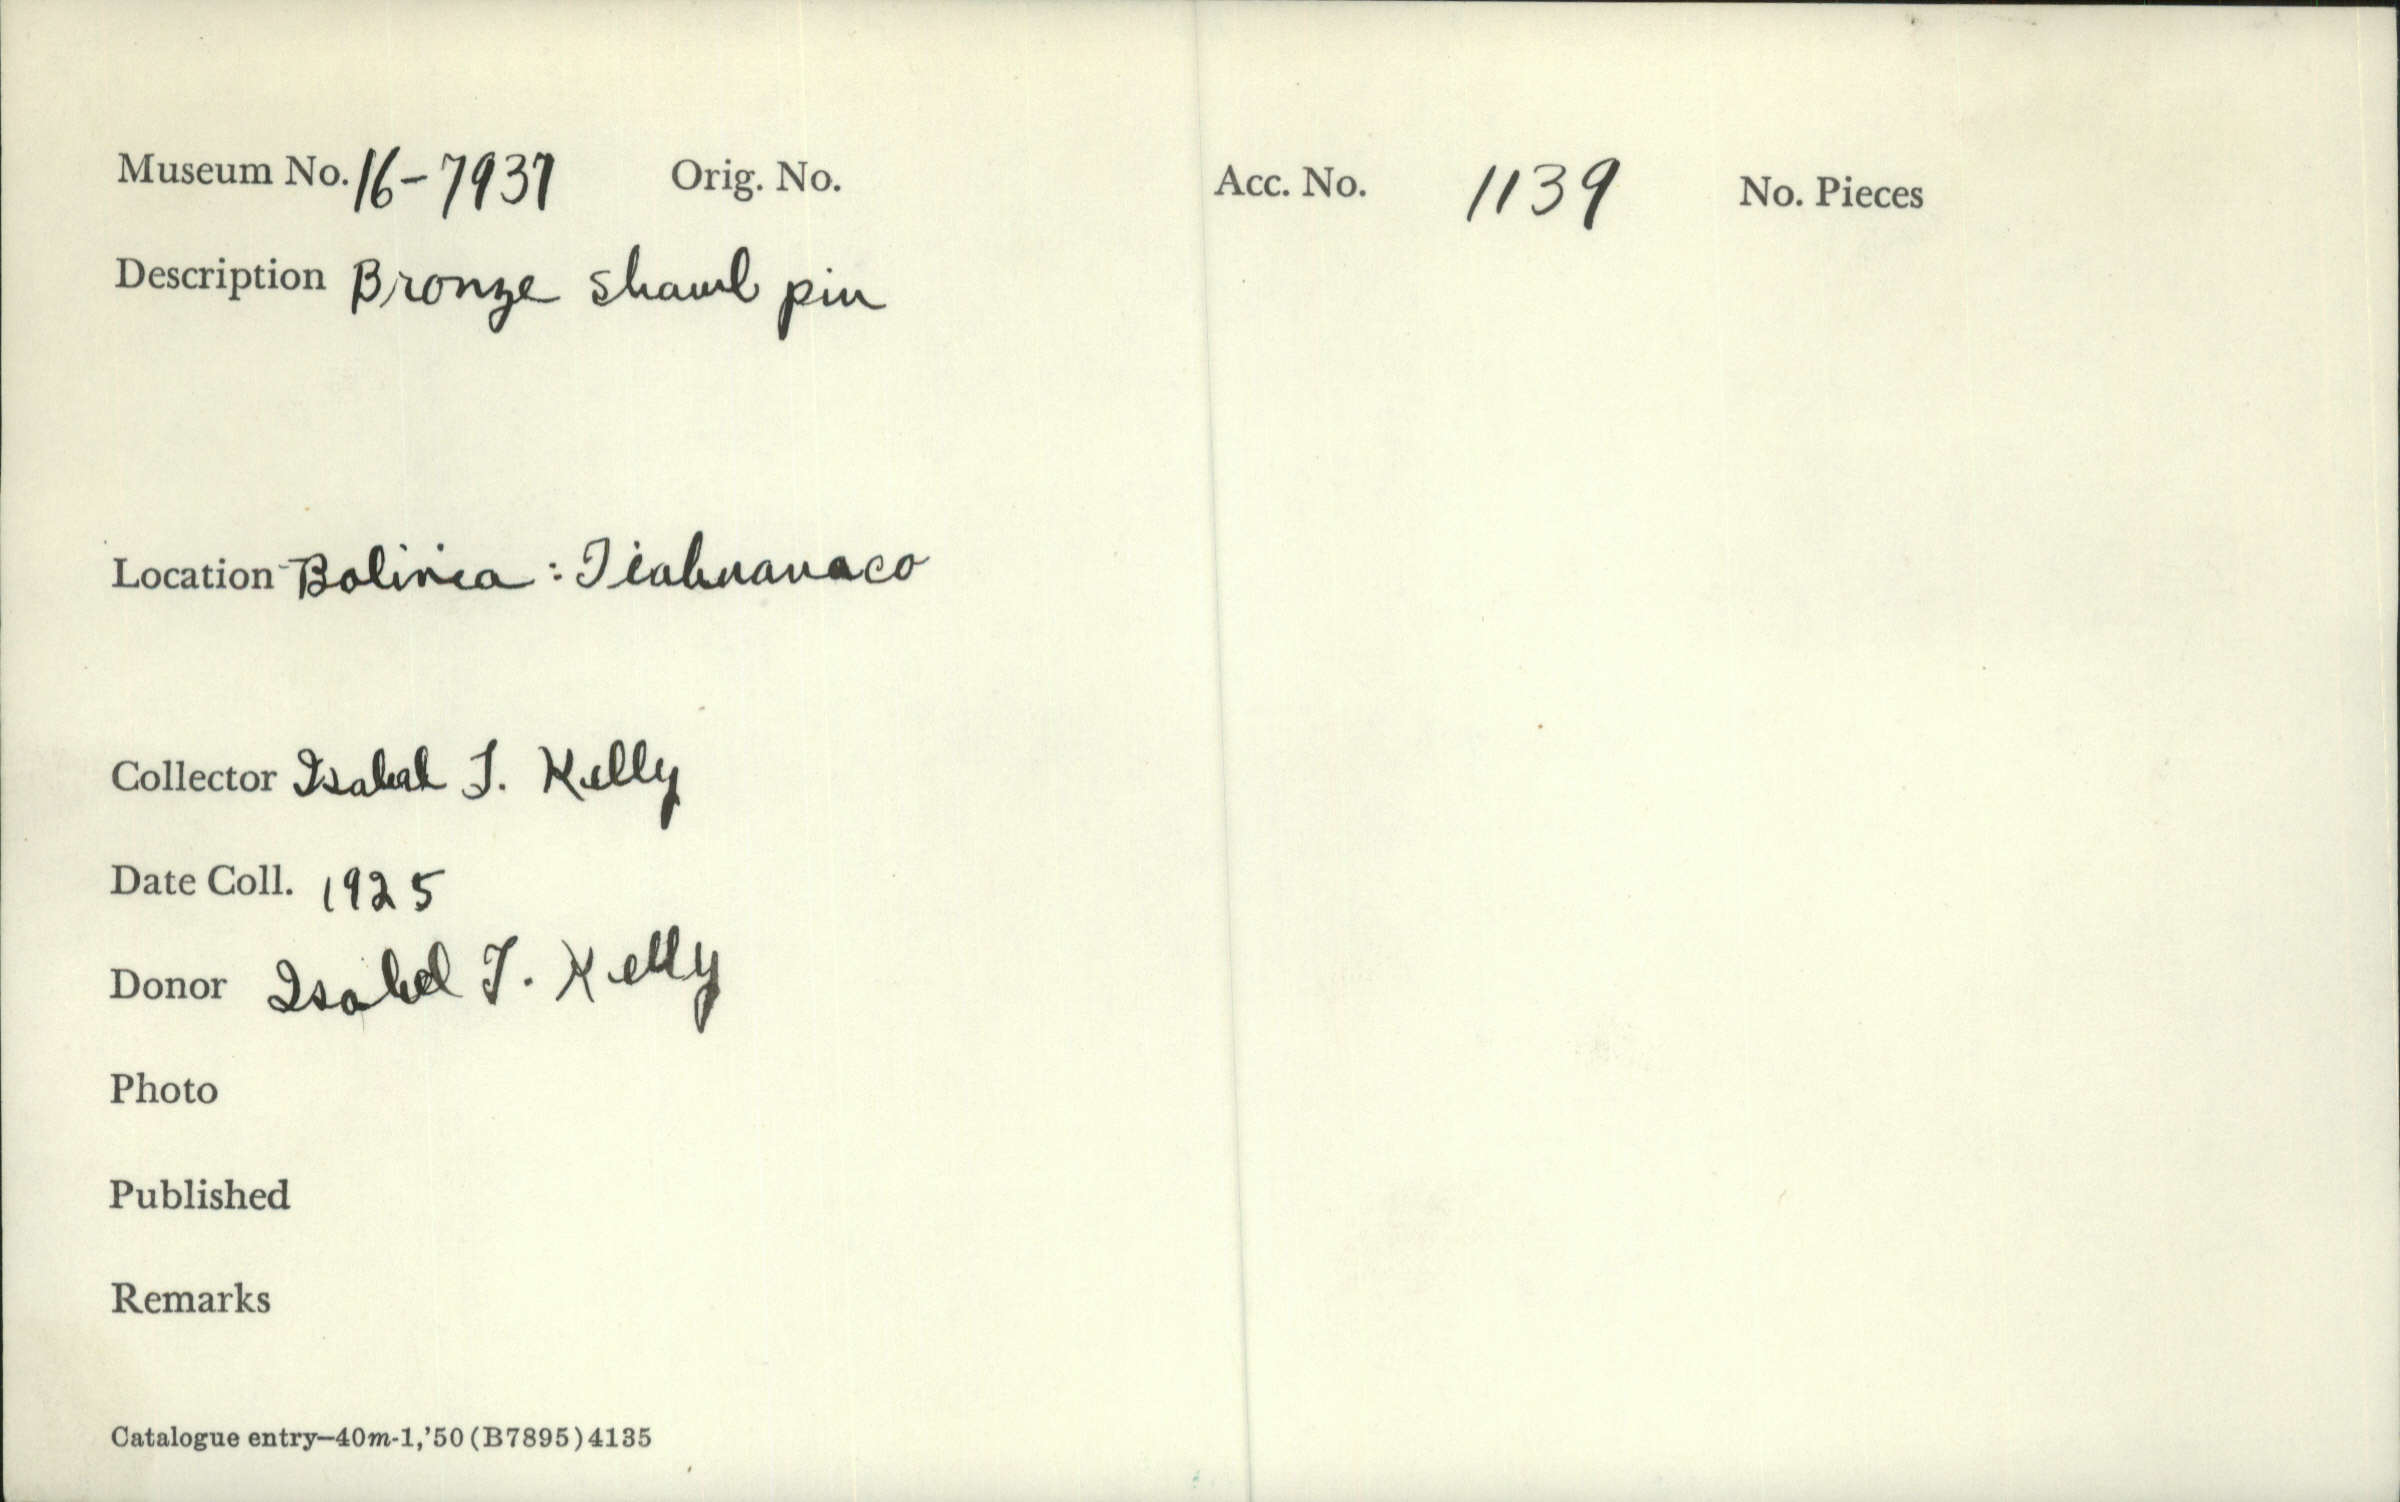 Museum No. 16-7937 Orig. No. Acc. No. 1139 No. Pieces
Description Bronze shawl pin
Location Bolivia : Tiahuanaco
Collector Isabel T. Kelly
Date Coll. 1925
Donor Isabel T. Kelly
Photo
Published
Remarks
Catalogue entry—40m-1,'50 (B7895) 4135